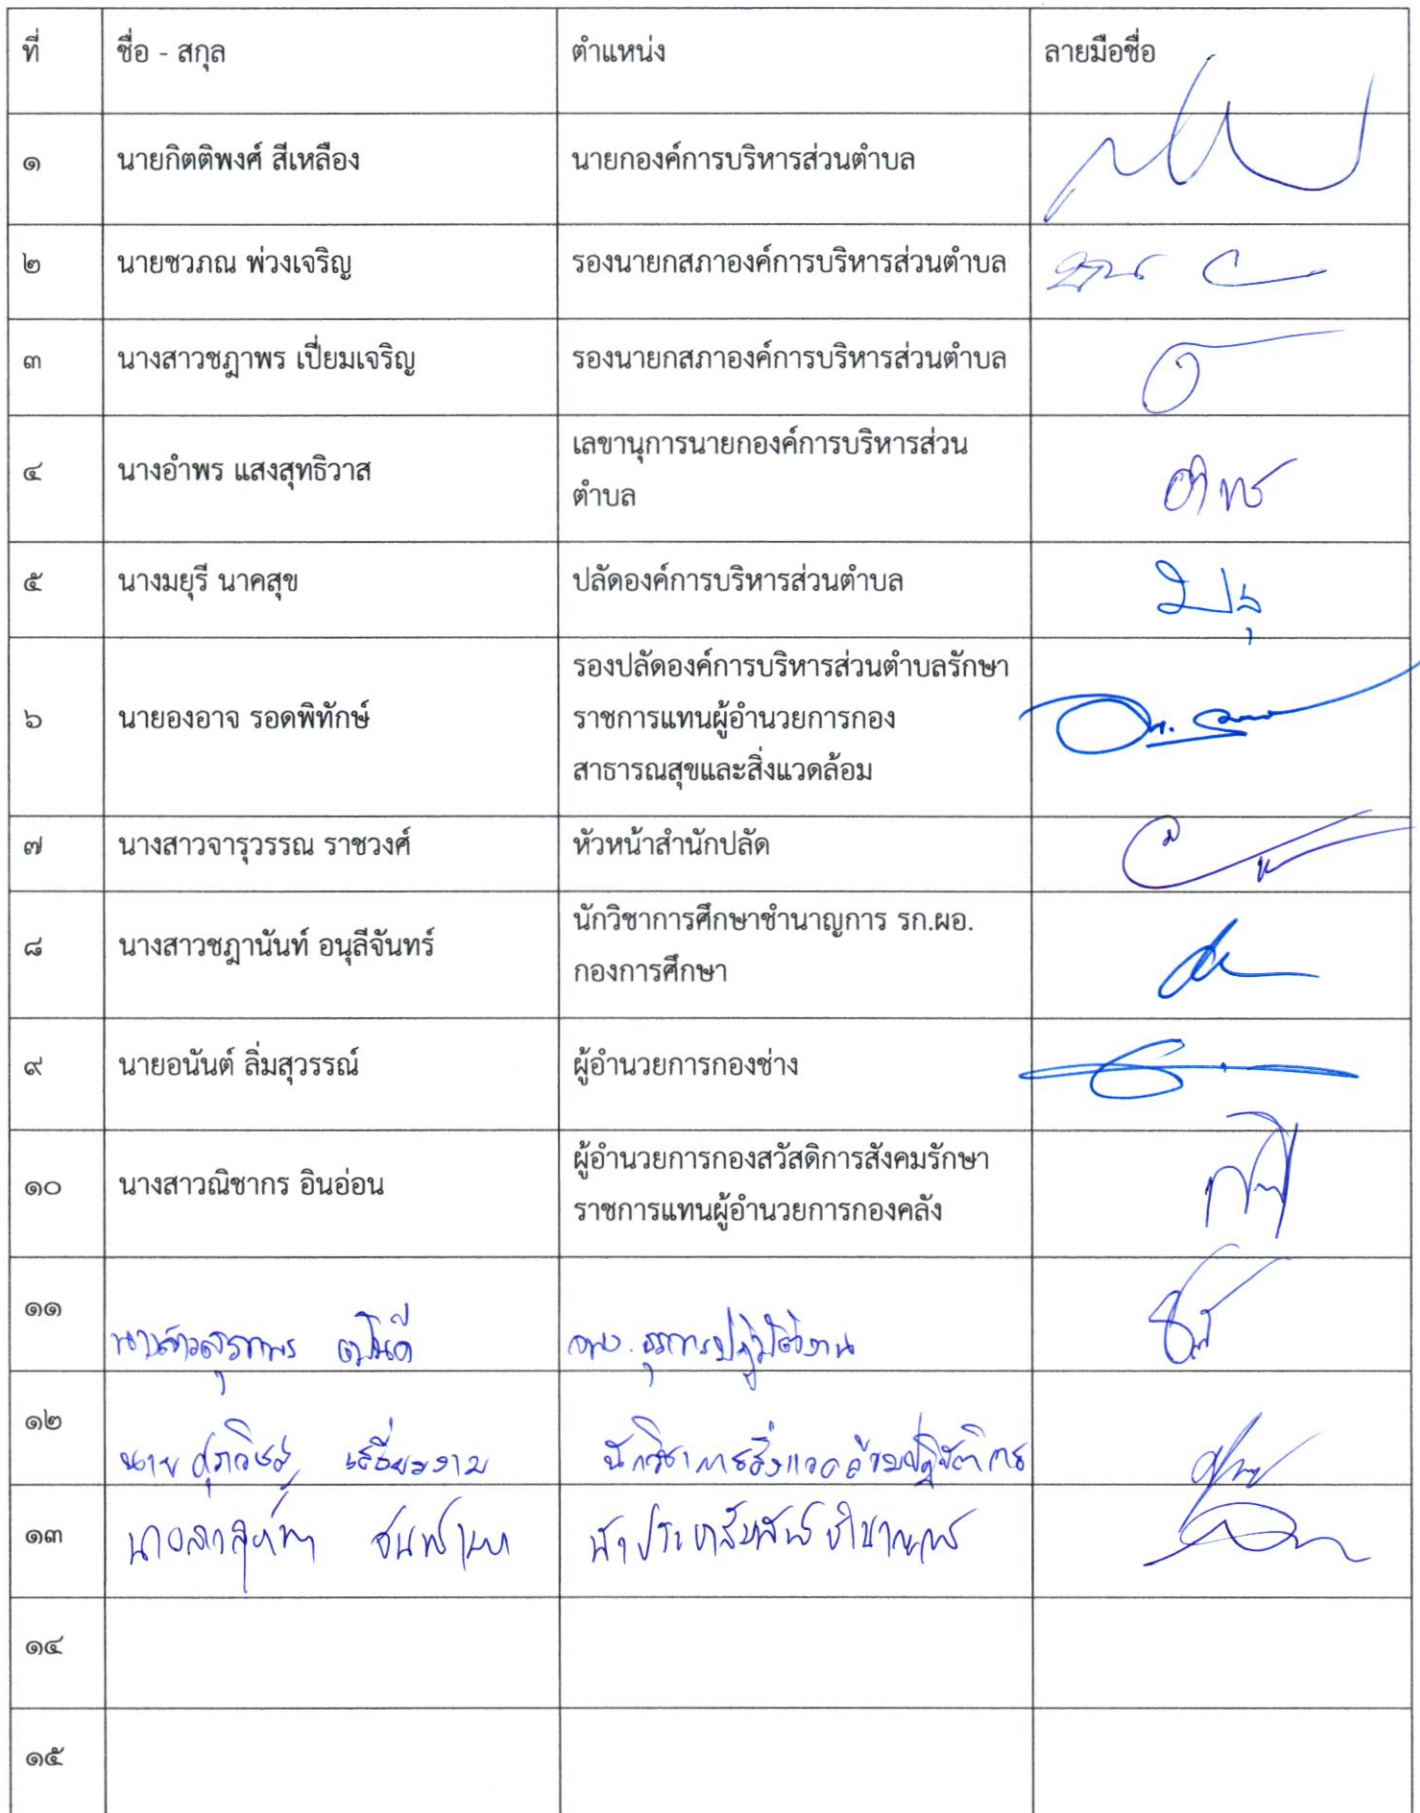 ที่ ชื่อ - สกุล ตำแหน่ง ลายมือชื่อ
๑ นายกิตติพงศ์ สีเหลือง นายกองค์การบริหารส่วนตำบล
๒ นายชวภณ พ่วงเจริญ รองนายกสภาองค์การบริหารส่วนตำบล
๓ นางสาวชฎาพร เปี่ยมเจริญ รองนายกสภาองค์การบริหารส่วนตำบล
๔ นางอำพร แสงสุทธิวาส เลขานุการนายกองค์การบริหารส่วน
ตำบล
๕ นางมยุรี นาคสุข ปลัดองค์การบริหารส่วนตำบล
๖ นายองอาจ รอดพิทักษ์ รองปลัดองค์การบริหารส่วนตำบลรักษา
ราชการแทนผู้อำนวยการกอง
สาธารณสุขและสิ่งแวดล้อม
๗ นางสาวจารุวรรณ ราชวงศ์ หัวหน้าสำนักปลัด
๘ นางสาวชฎานันท์ อนุลีจันทร์ นักวิชาการศึกษาชำนาญการ รก.ผอ.
กองการศึกษา
๙ นายอนันต์ ลิ่มสุวรรณ์ ผู้อำนวยการกองช่าง
๑๐ นางสาวณิชากร อินอ่อน ผู้อำนวยการกองสวัสดิการสังคมรักษา
ราชการแทนผู้อำนวยการกองคลัง
๑๑ นางสาว จพง.ธุรการปฏิบัติงาน
๑๒ นาย นักวิชาการสิ่งแวดล้อมปฏิบัติการ
๑๓ นักประชาสัมพันธ์ชำนาญการ
๑๔
๑๕